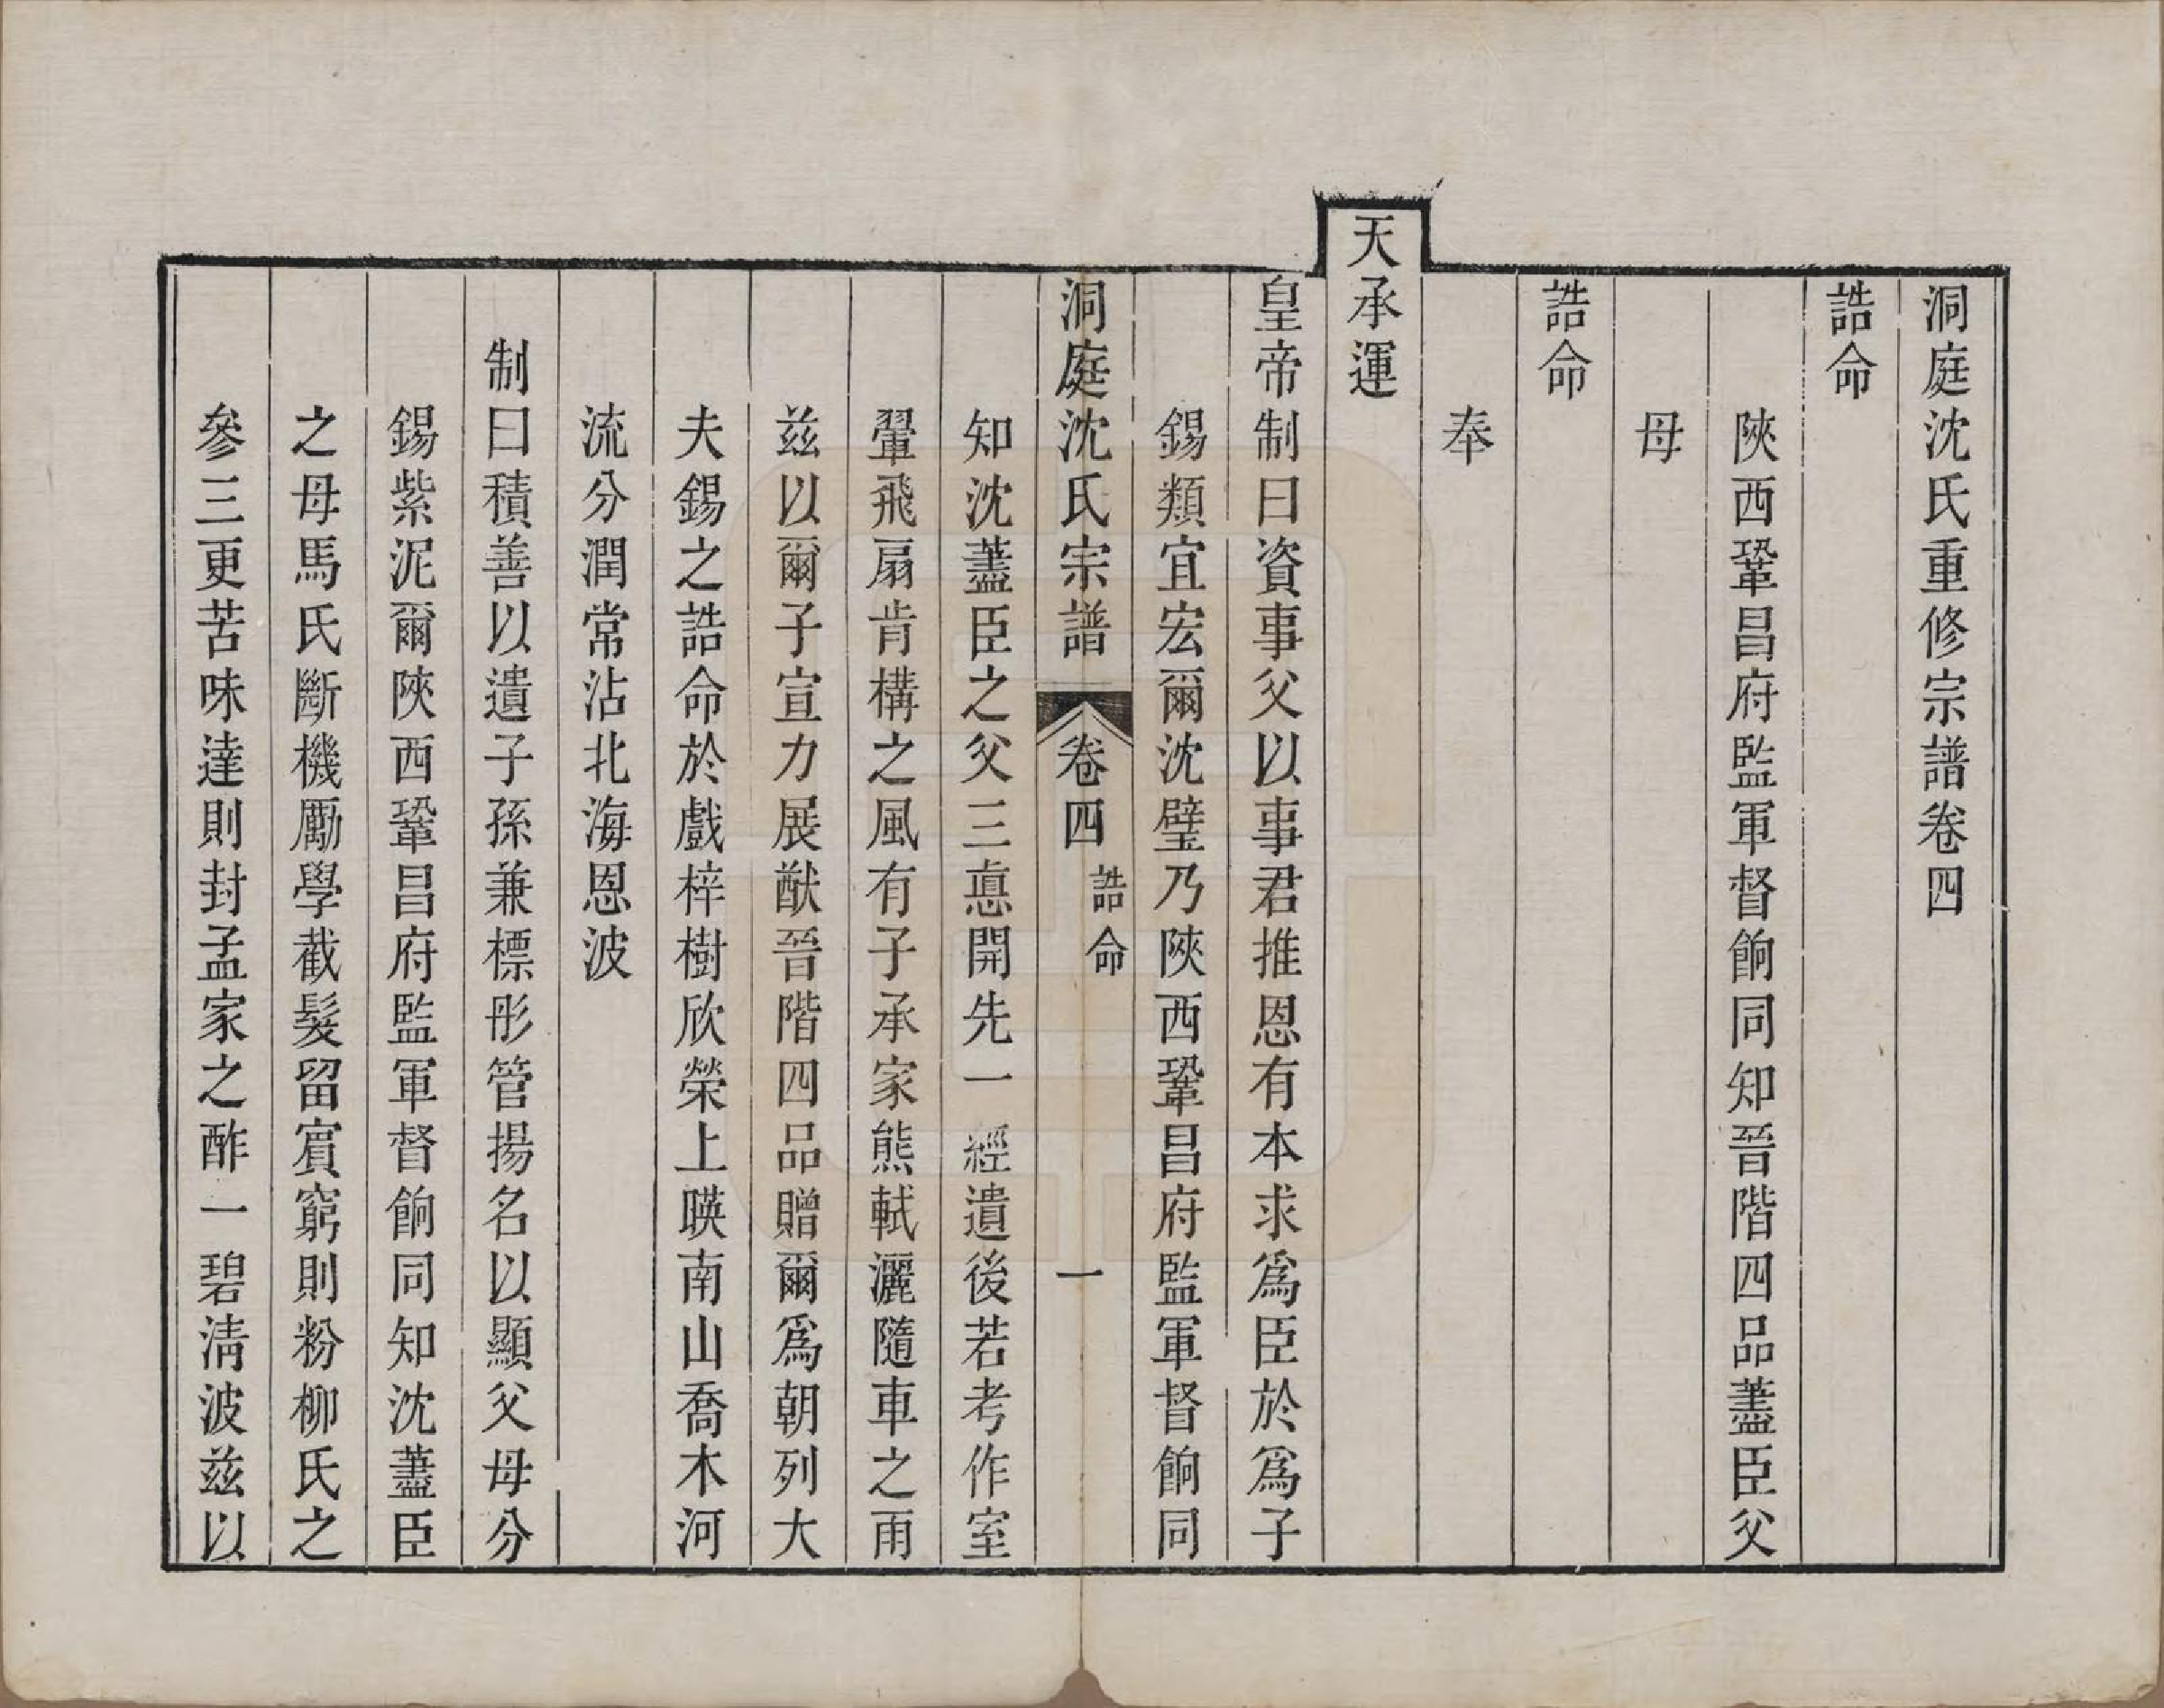 洞庭沈氏重修宗譜卷四
誥命
陝西鞏昌府監軍督餉同知晉階四品藎臣父
母
誥命
奉
天承運
皇帝制曰資事父以事君推恩有本求爲臣於爲子
錫類宜宏爾沈璧乃陝西鞏昌府監軍督餉同
洞庭沈氏宗譜 卷四 誥命 一
知沈藎臣之父三惪開先一經遺後若考作室
翬飛扇肯構之風有子承家熊軾灑隨車之雨
茲以爾子宣力展猷晉階四品贈爾爲朝列大
夫錫之誥命於戲梓樹欣榮上暎南山喬木河
流分潤常沾北海恩波
制曰積善以遺子孫兼標彤管揚名以顯父母分
錫紫泥爾陝西鞏昌府監軍督餉同知沈藎臣
之母馬氏斷機勵學截髮留賓窮則粉柳氏之
參三更苦味達則封孟家之酢一碧淸波茲以